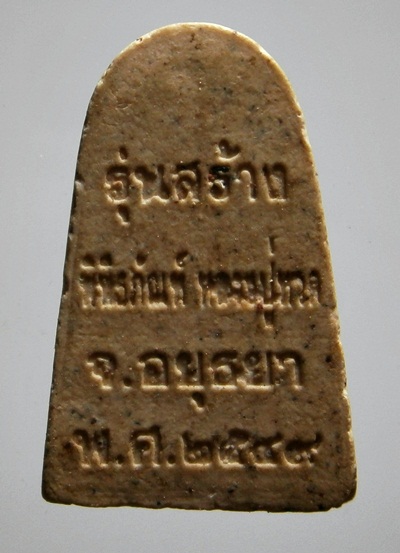 รุ่นสร้าง
พิพิธภัณฑ์ หลวงปู่ทวด
จ.อยุธยา
พ.ศ.๒๕๔๙